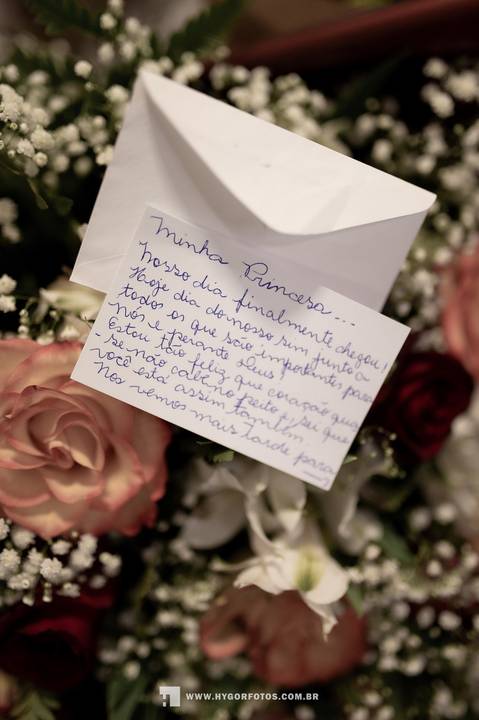 Minha Princesa...
Nosso dia finalmente chegou!
Hoje dia do nosso sim junto a
todos os que são importantes para
Nós e perante Deus!
Estou tão feliz que coração qua
se não cabe no peito e sei que
você está assim também.
Nos vemos mais tarde para
WWW.HYGORFOTOS.COM.BR